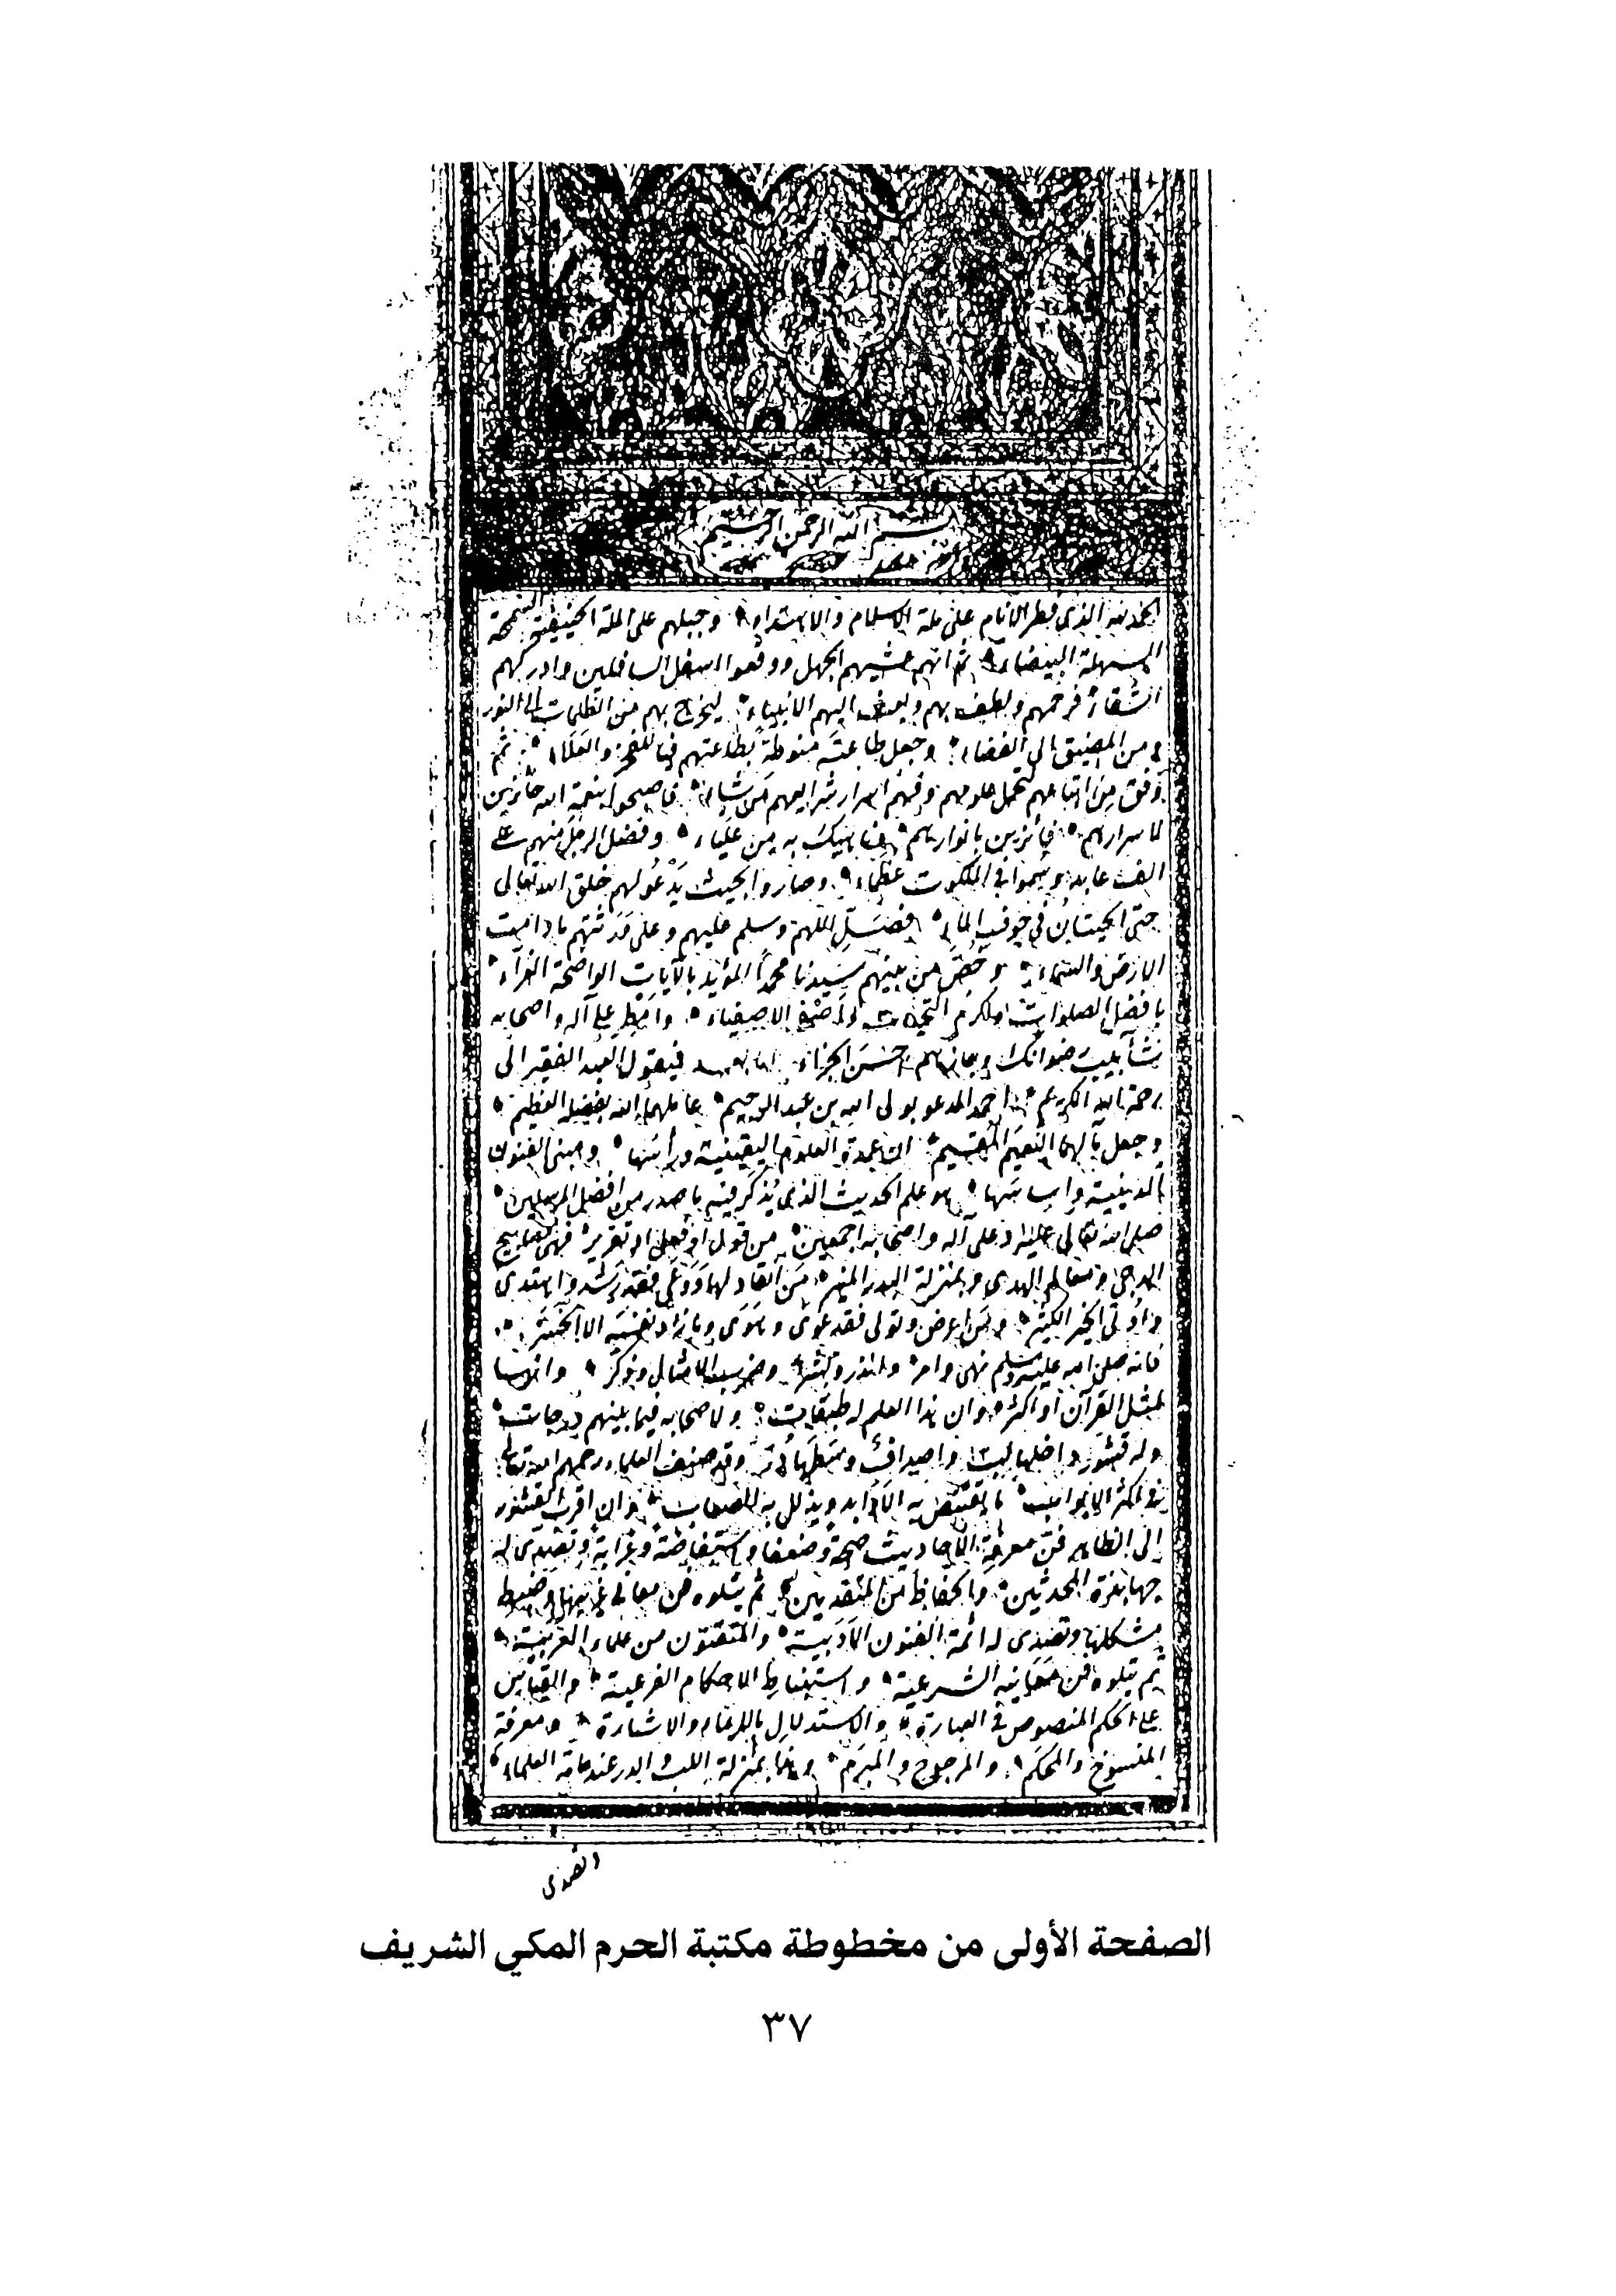 بسم الله الرحمن الرحيم
الحمد لله الذى فطر الانام على ملة الاسلام والاهتداء وجبلهم على الملة الحنيفية السمحة
السهلة البيضاء ثم انهم غشيهم الجهل ووقعوا اسفل السافلين وادركهم
الشقاء فرحمهم ولطف بهم وبعث اليهم الانبياء ليخرج بهم من الظلمات الى النور
ومن المضيق الى الفضاء وجعل طاعته منوطة بطاعتهم فيا للفخر والعلاء ثم
وفق من اتباعهم لتحمل علومهم وفهم اسرار شرايعهم من شاء فاصبحوا بنعمة الله حائزين
لاسرارهم فائزين بانوارهم وناهيك به من علياء وفضل الرجل منهم على
الف عابد وسموا فى الملكوت عظماء وصاروا بحيث يدعو لهم خلق الله تعالى
حتى الحيتان في جوف الماء فصل اللهم وسلم عليهم وعلى ورثتهم ما دامت
الارض والسماء وخص من بينهم سيدنا محمدا المؤيد بالآيات الواضحة الغراء
بافضل الصلوات واكرم التحيات واصفى الاصطفاء وامطر على آله واصحابه
شآبيب رضوانك وجازهم احسن الجزاء اما بعد فيقول العبد الفقير الى
رحمة الله الكريم احمد المدعو بولى الله بن عبد الرحيم عاملهما الله بفضله العظيم
وجعل مآلهما النعيم المقيم ان عمدة العلوم اليقينية ورأسها ومبنى الفنون
الدينية واساسها هو علم الحديث الذى يذكر فيه ما صدر من افضل المرسلين
صلى الله تعالى عليه وعلى آله واصحابه اجمعين من قول او فعل او تقرير فهى مصابيح
الدجى ومعالم الهدى وبمنزلة البدر المنير من انقاد لها ووعى فقد رشد واهتدى
واوتى الخير الكثير ومن اعرض وتولى فقد غوى وهوى وما زاد نفسه الا التخسير
فانه صلى الله عليه وسلم نهى وامر وانذر وبشر وضرب الامثال وذكر وانها
لمثل القرآن او اكثر وان هذا العلم له طبقات ولاصحابه فيما بينهم درجات
وله قشور داخلها لب واصداف وسطها در وقد صنف العلماء رحمهم الله تعالى
فى اكثر الابواب ما تقتنص به الاوابد ويذلل به الصعاب وان اقرب القشور
الى الظاهر فن معرفة الاحاديث صحة وضعفا واستفاضة وغرابة وتصدى له
جهابذة المحدثين والحفاظ من المتقدمين ثم يتلوه فن معانى غريبها وضبط
مشكلها وتصدى له ائمة الفنون الادبية والمتقنون من علماء العربية
ثم يتلوه فن معانيه الشرعية واستنباط الاحكام الفرعية والقياس
على الحكم المنصوص فى العبارة والاستدلال بالايماء والاشارة ومعرفة
المنسوخ والمحكم والمرجوح والمبرم وهذا بمنزلة اللب والدر عند عامة العلماء
وتصدى
الصفحة الأولى من مخطوطة مكتبة الحرم المكي الشريف
٣٧